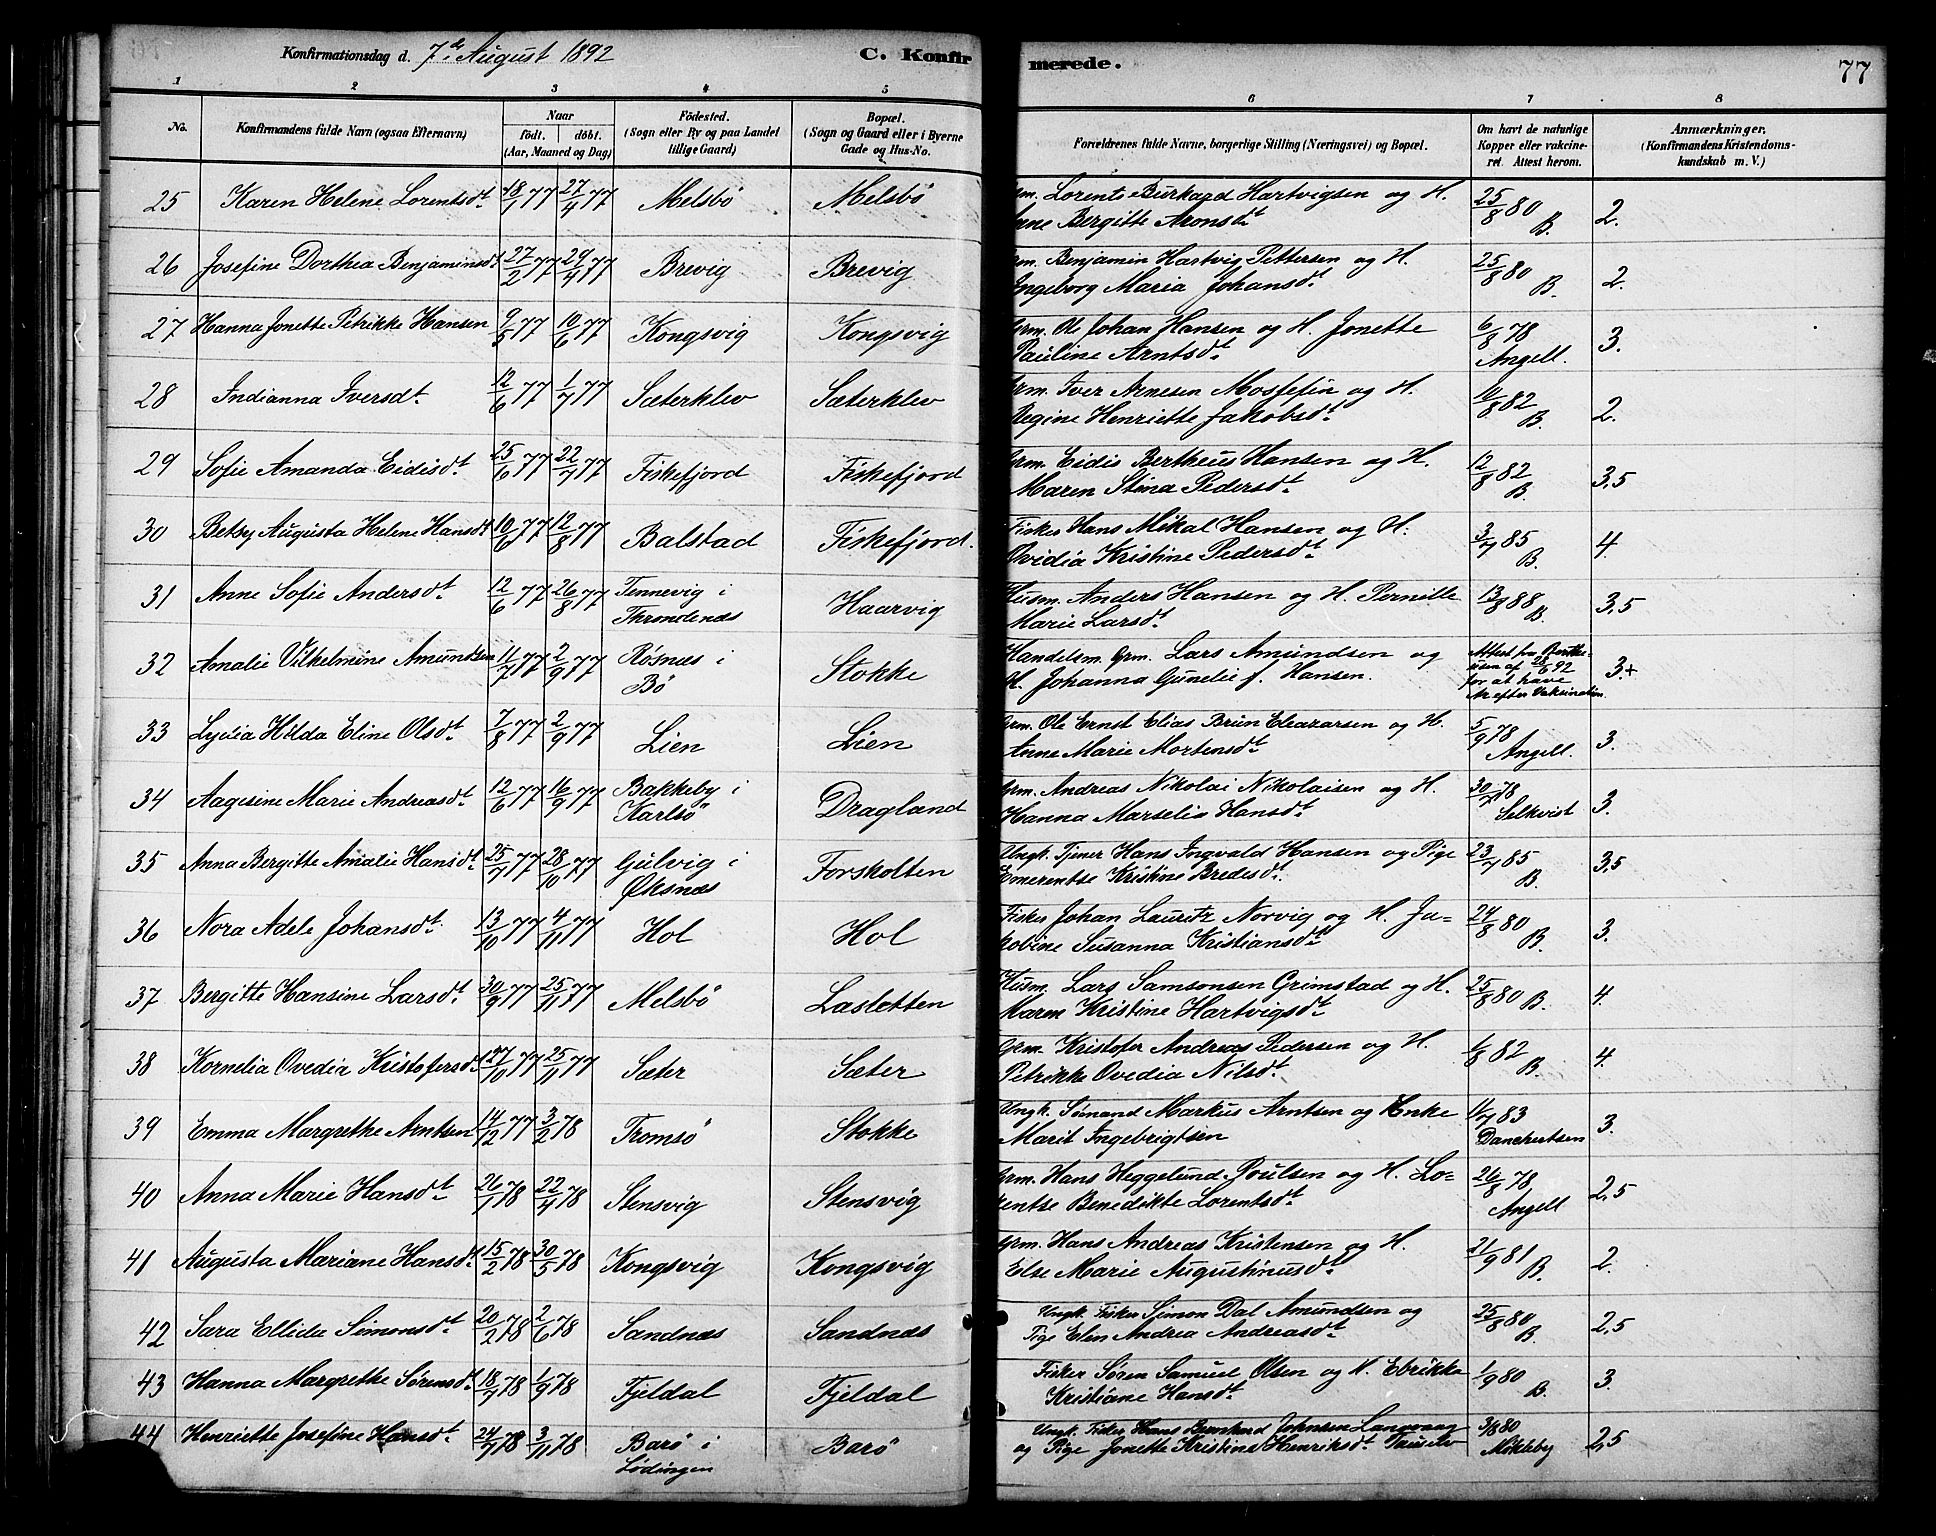 Konfirmationsdag d. 7de August 1892 C. Konfirmerede. 77
1 2 3 4 5 6 7 8
No. Konfirmandens fulde Navn (ogsaa Efternavn) Naar født. døbt. (Aar, Maaned og Dag) Fødested. (Sogn eller By og paa Landet tillige Gaard) Bopæl. (Sogn og Gaard eller i Byerne Gade og Hus-No. Forældrenes fulde Navne, borgerlige Stilling (Næringsvei) og Bopæl. Om havt de naturlige Kopper eller vakcineret. Attest herom. Anmærkninger. (Konfirmandens Kristendomskundskab m. V.)
25 Karen Helene Lorentsdt. 18/1 77 27/4 77 Melsbö Melsbö Grm. Lorents Burkard Hartvigsen og H. 25/8 80 B. 2.
Anne Bergitte Aronsdt
26 Josefine Dorthea Benjaminsdt 27/2 77 29/4 77 Brevig Brevig Grm. Benjamin Hartvig Pettersen og H. 25/8 80 B. 2.
Ingeborg Maria Johansdt.
27 Hanna Jonette Petrikke Hansen 9/5 77 10/6 77 Kongsvig Kongsvig Grm. Ole Johan Hansen og H. Jonette 6/8 78 3.
Pauline Arntsdt. Angell.
28 Indianna Iversdt. 12/6 77 1/7 77 Sæterklev Sæterklev Grm. Iver Arnesen Mossefin og H. 16/8 82 B. 2.
Regine Henriette Jakobsdt.
29 Sofie Amanda Eidisdt. 25/6 77 22/7 77 Fiskefjord Fiskefjord Grm. Eidis Bertheus Hansen og H. 12/8 82 B. 3,5
Maren Stina Pedersdt.
30 Betsy Augusta Helene Hansdt 10/6 77 12/8 77 Balstad Fiskefjord. Fisker Hans Mikal Hansen og H. 3/7 85 B. 4
Ovidia Kristine Pedersdt.
31 Anne Sofie Andersdt. 12/6 77 26/8 77 Tennevig i Haarvig Husm. Anders Hansen og H. Pernille 13/8 88 B. 3,5
Throndenæs Marie Larsdt.
32 Amalie Vilhelmine Amundsen 11/7 77 2/9 77 Røsnæs i Stokke Handelsm. Grm. Lars Amundsen og Attest fra 3.+
Bö H. Johanna Gunelie f. Hansen. af 28/6 92 for at have Ar efter Vaksination.
33 Lydia Hilda Eline Olsdt. 7/8 77 2/9 77 Lien Lien Grm. Ole Ernst Elias Brun Eleazarsen og H. 5/9 78 3.
Anne Marie Mortensdt. Angell.
34 Aagesine Marie Andreasdt. 12/6 77 16/9 77 Bakkeby i Dragland Grm. Andreas Nikolai Nikolaisen og H. 30/7 78 3.
Karlsö Hanna Marselia Hansdt. Selkvist
35 Anna Bergitte Amalie Hansdt. 25/7 77 28/10 77 Gulvig i Forskolten Ungk. Tjener Hans Ingvald Hansen og Pige 23/7 85 B. 3,5
Øksnæs Emerentse Kristine Bredesdt.
36 Nora Adele Johansdt. 13/10 77 4/11 77 Hol Hol Fisker Johan Lauritz Norvig og H. Ja= 24/8 80 B. 3.
kobine Susanna Kristiansdt.
37 Bergitte Hansine Larsdt. 30/9 77 25/11 77 Melsbö Lasletten Husm. Lars Samsonsen Grimstad og H. 25/8 80 B. 4.
Maren Kristine Hartvigsdt.
38 Kornelia Ovedia Kristofersdt. 27/10 77 25/11 77 Sæter Sæter Grm. Kristofer Andreas Pedersen og H. 1/8 82 B. 4.
Petrikke Ovedia Nilsdt.
39 Emma Margrethe Arntsen 14/12 77 3/2 78 Tromsö Stokke Ungk. Sömand Markus Arntsen og Enke 11/7 83 3.
Marit Ingebrigtsen Danchertsen
40 Anna Marie Hansdt. 26/1 78 22/4 78 Stensvig Stensvig Grm. Hans Heggelund Poulsen og H. Lo= 26/8 78 2,5
rentse Benedikte Lorentsdt. Angell
41 Augusta Mariane Hansdt. 15/2 78 30/5 78 Kongsvig Kongsvig Grm. Hans Andreas Kristensen og H. 21/9 81 B. 2.
Else Marie Augustinusdt.
42 Sara Ellida Simonsdt. 20/2 78 2/6 78 Sandnæs Sandnæs Ungk. Fisker Simon Dal Amundsen og 25/8 80 B. 2,5
Pige Elen Andrea Andreasdt.
43 Hanna Margrethe Sørensdt. 18/7 78 1/9 78 Fjeldal Fjeldal Fisker Søren Samuel Olsen og H. Ebrikka 1/9 80 B. 3.
Kristiane Hansdt.
44 Henriette Josefine Hansdt. 24/7 78 3/11 78 Barö i Barö Ungk. Fisker Hans Bernhard Johnsen Langvaag 3/8 80 2,5
Lødingen og Pige Jonette Kristine Henriksdt. Mökleby